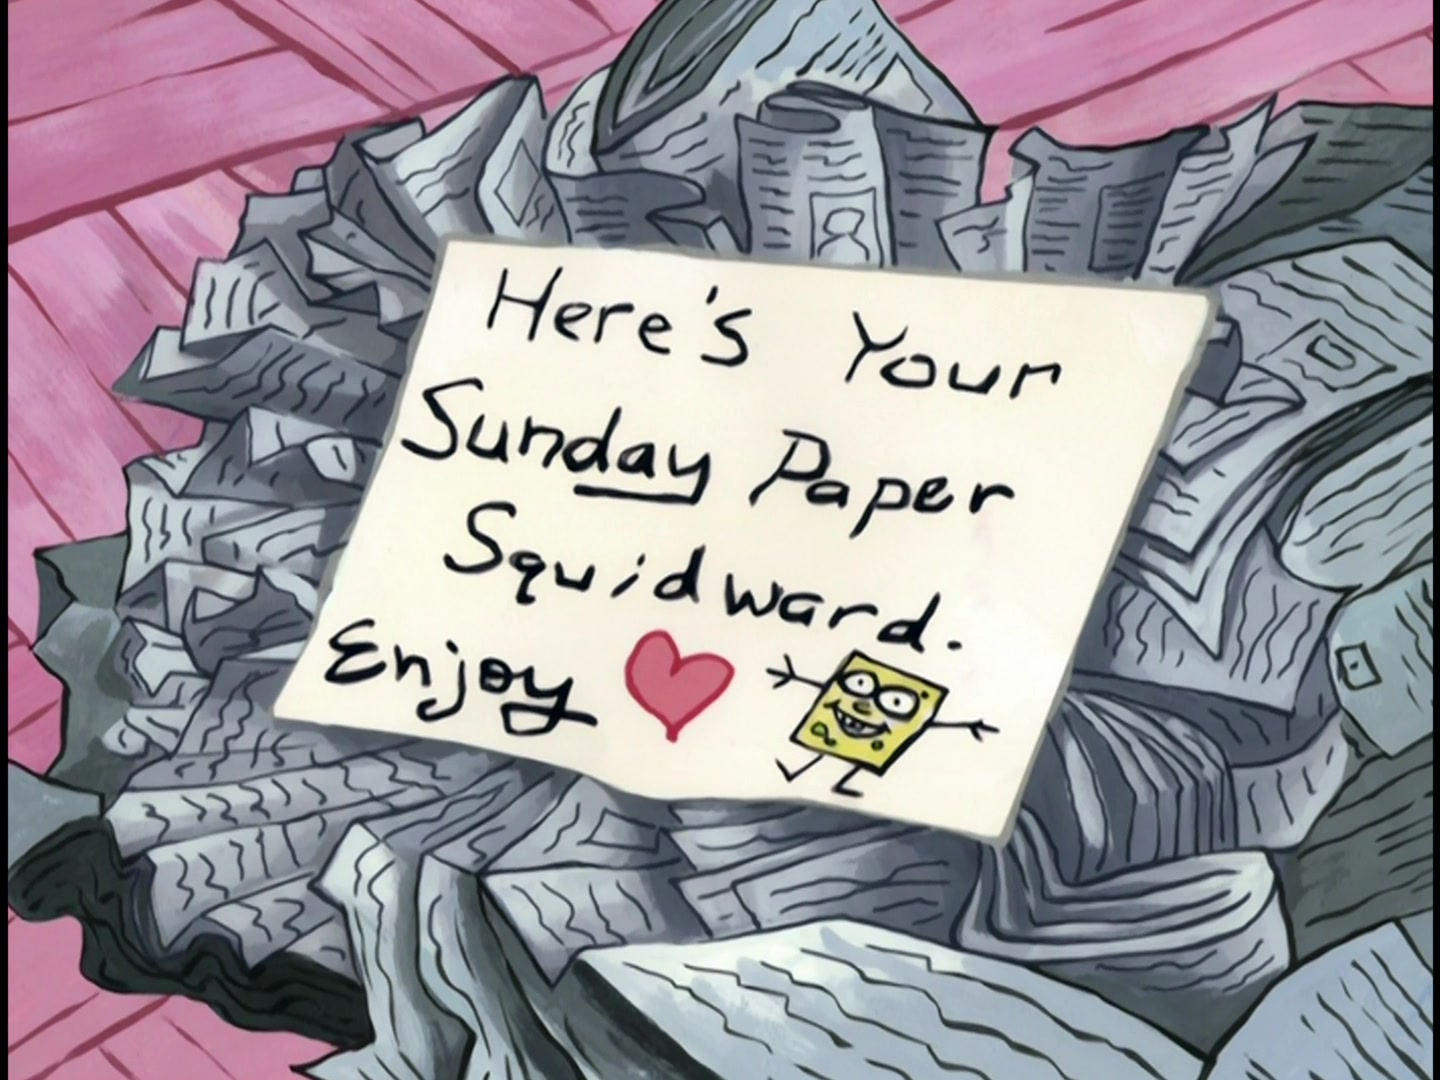 Here's Your
Sunday Paper
Squidward.
Enjoy